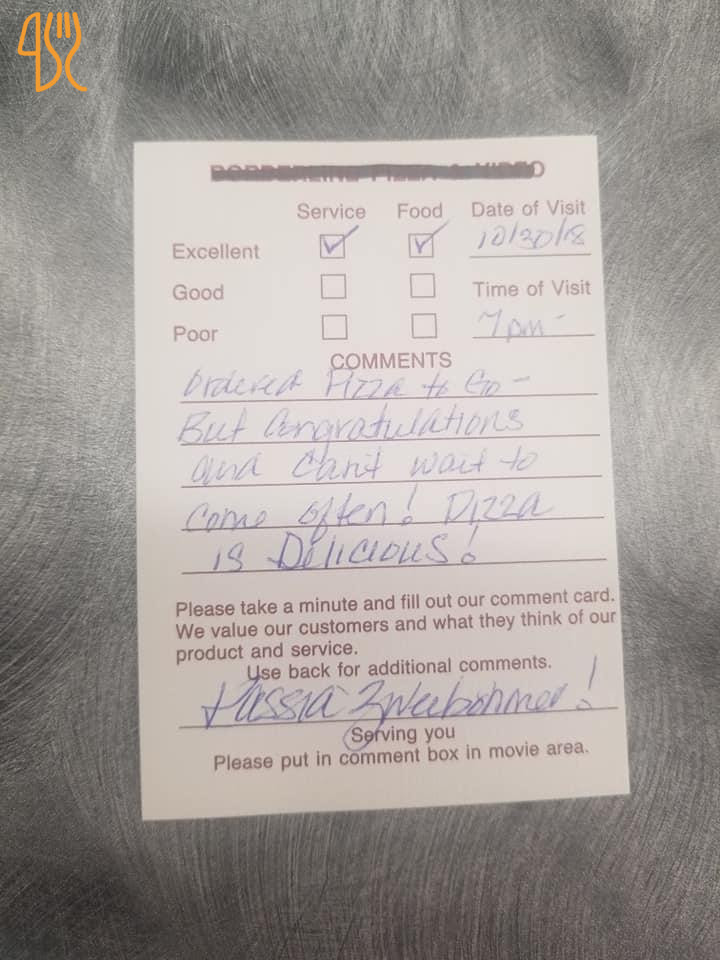 BORDERLINE PIZZA & VIDEO
Service Food Date of Visit
Excellent 10/30/18
Good Time of Visit
Poor 7pm-
COMMENTS
Ordered Pizza to Go -
But Congratulations
and Can't wait to
come often! Pizza
is Delicious!
Please take a minute and fill out our comment card.
We value our customers and what they think of our
product and service.
Use back for additional comments.
Serving you
Please put in comment box in movie area.